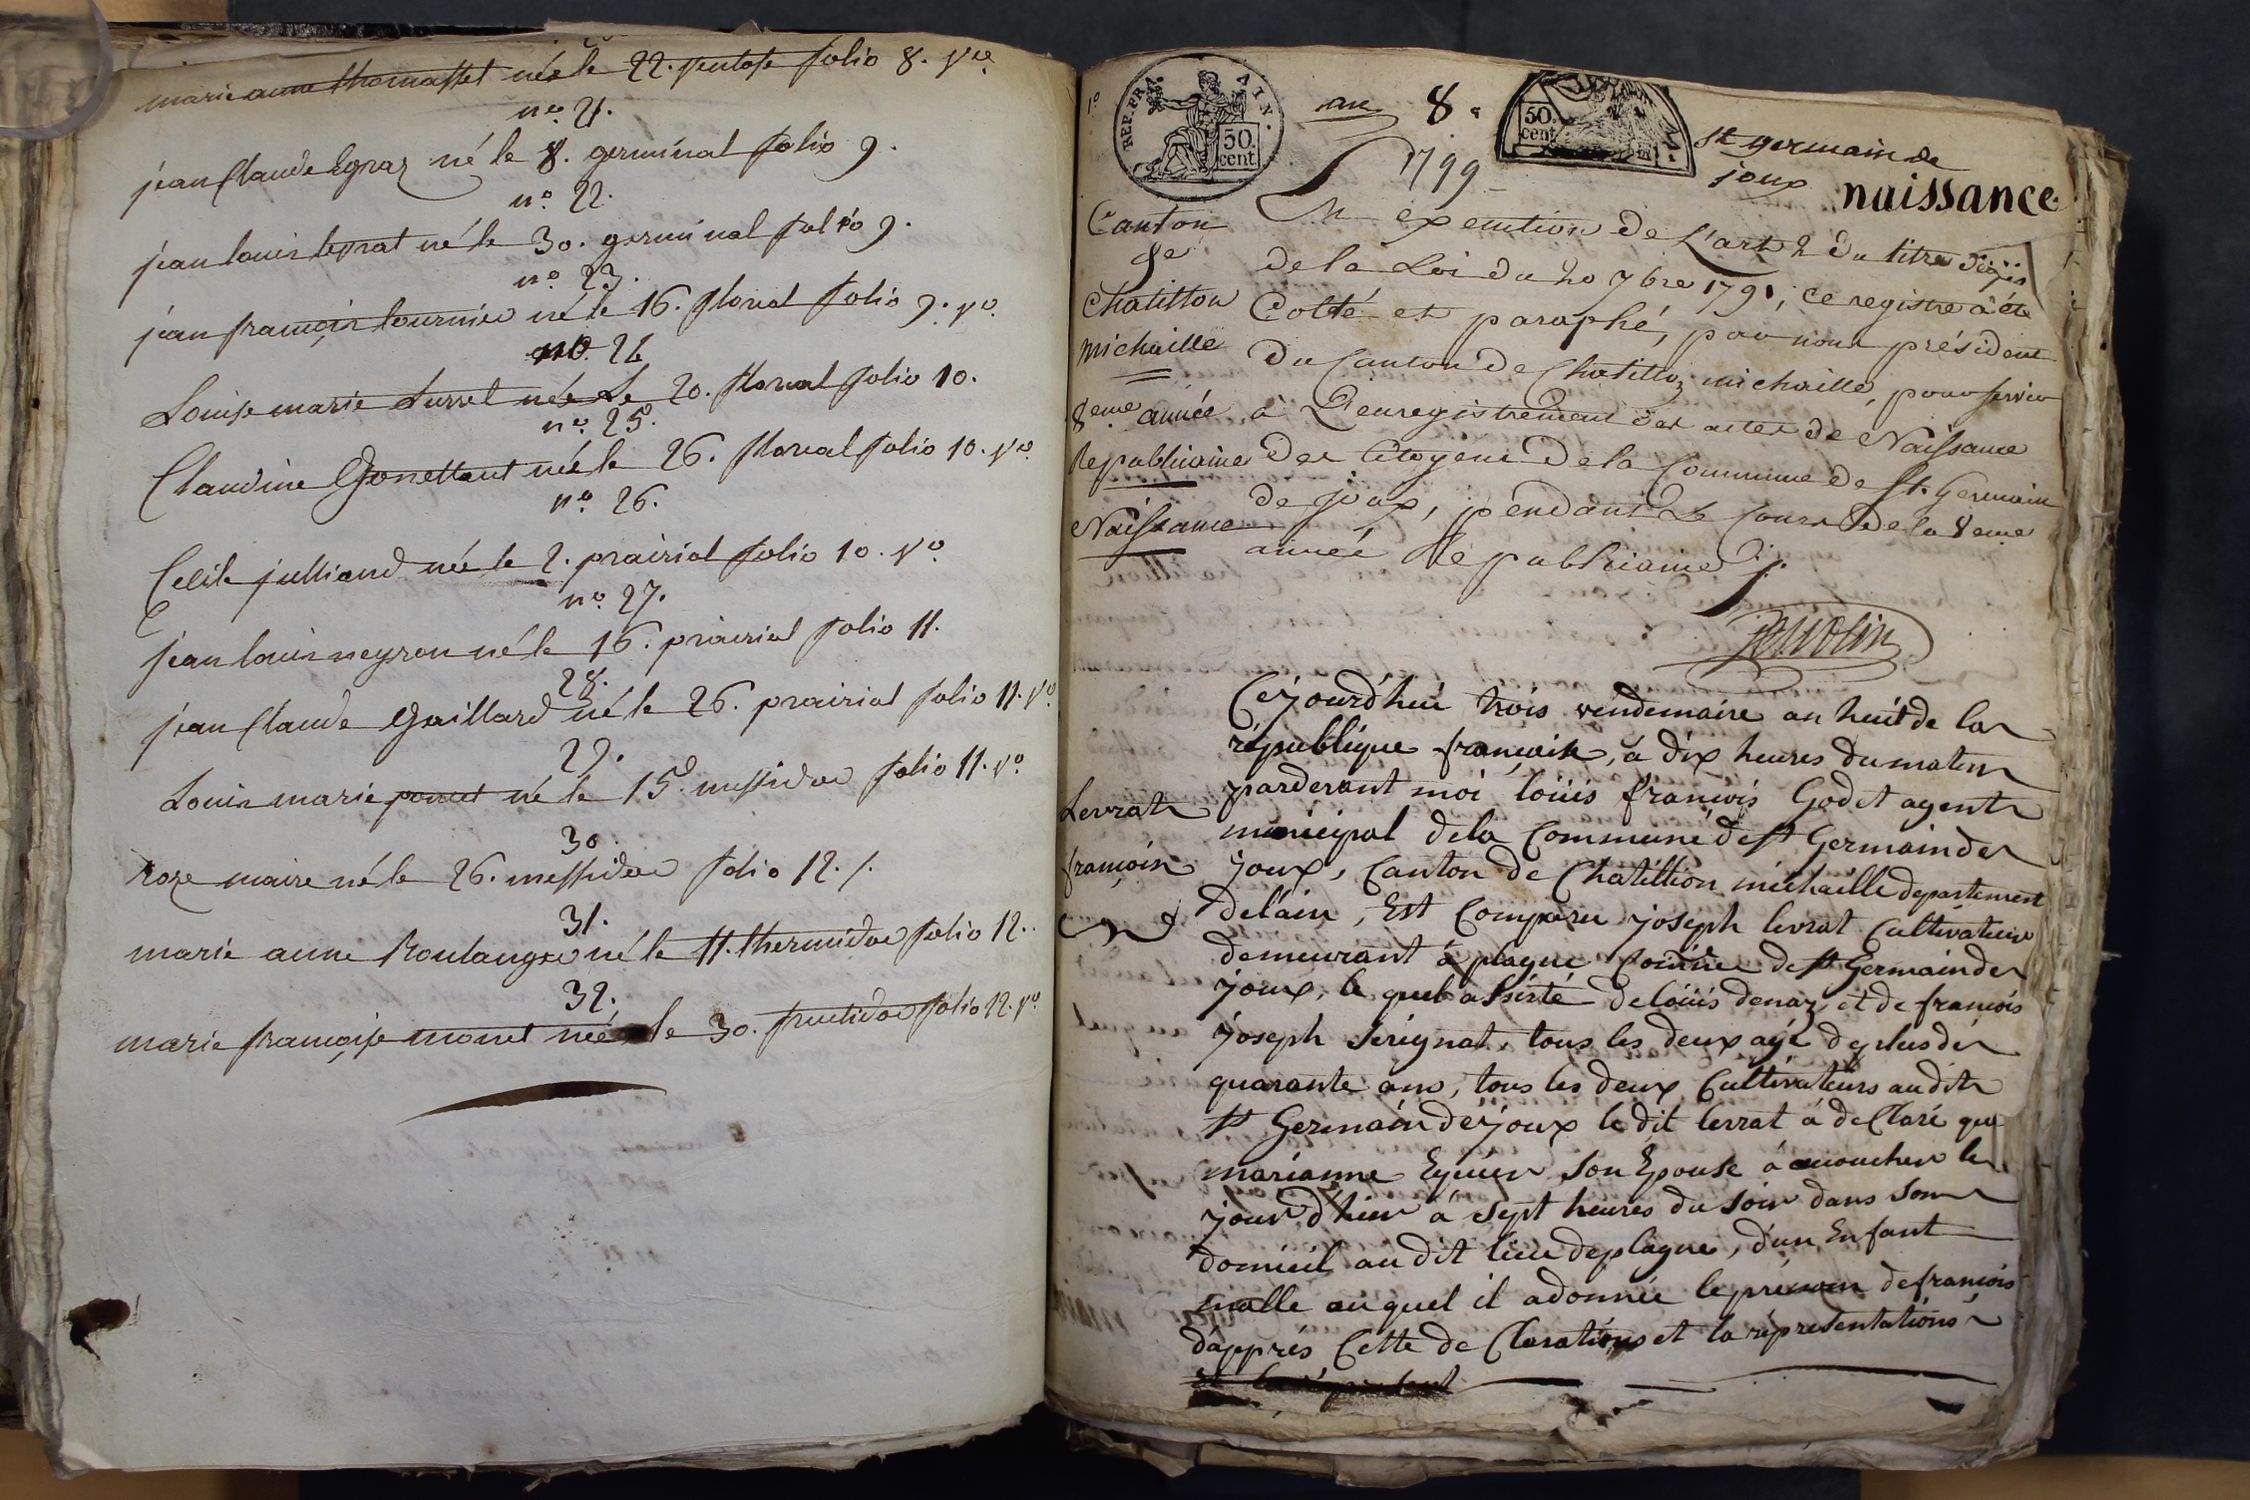 marie anne thomasset née le 22. ventose folio 8. vo
no. 21.
jean Claude Egraz né le 8. germinal folio 9.
no. 22.
jean louis levrat né le 30. germinal folio 9.
no. 23.
jean françois tournier né le 16. floreal folio 9. vo.
no. 24
Louise marie né Le 20. floreal folio 10.
no. 25.
Claudine née le 26. floreal folio 10. vo
no 26.
Celile julliand née le 2. prairial folio 10. vo
no. 27.
jean louis neyron né le 16. prairial folio 11.
28.
jean Claude Gaillard né le 26. prairial folio 11. vo
29.
Louis marie poncet né le 15. messidor folio 11. vo.
30.
roze maire né le 26. messidor folio 12. /.
31.
marie anne Boulanger né le 11. thermidor folio 12.
32.
marie françoise monet née le 30. fructidor folio 12. vo
1o
REP. FRA. AIN.
50. cent
an 8.
50. cent
st germain de
joux
1799
naissance.
Canton
de
Chatillon
michaille
8eme année
Republicaine
Naissance
En execution de L'art 2 du titre
de la Loi du 20 7bre 1792, ce registre a été
Cotté et paraphé, par nous président
du Canton de Chatillon michaille, pour servir
à L'enregistrement des actes de Naissance
des Citoyens de la Commune de St. Germain
de joux, pendant Le Cours de la 8eme
année Republicaine
Levrat
françois
Cejourd'hui trois vendemaire an huit de la
république française, à dix heures du matin
pardevant moi loüis francois Godet agent
municipal dela Commune de St Germain de
joux, Canton de Chatillion michaille departement
delain, Est Comparu joseph levrat Cultivateur
demeurant à plagne Comune de St Germain de
joux, le quel assisté de loüis denaz, et de francois
joseph Sérignat, tous les deux agé de plus de
quarante ans, tous les deux Cultivateurs audit
St Germain de joux le dit levrat à de Claré que
marianne son Epouse à accoucher le
jour d'hier à sept heures du soir dans son
domicil au dit lieu de plagne, d'un Enfant
malle auquel il a donnée le prénom de francois
d'apprés Cette de Clarations et la répresentations